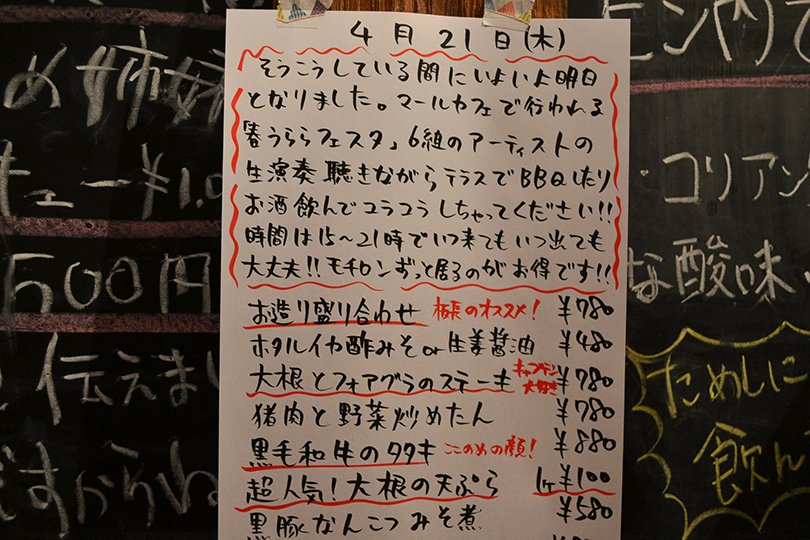 4月21日(木)
そうこうしている間にいよいよ明日
となりました。マールカフェで行われる
「春うららフェスタ」6組のアーティストの
生演奏聴きながらテラスでBBQしたり
お酒飲んでコラコラしちゃってください!!
時間は15〜21時でいつ来てもいつ出ても
大丈夫!!モチロンずっと居るのがお得です!!
お造り盛り合わせ 極長のオススメ! ¥780
ホタルイカ酢みそor生姜醤油 ¥480
大根とフォアグラのステーキ キャプテン大好き ¥780
猪肉と野菜炒めたん ¥780
黒毛和牛のタタキ ここのめの顔! ¥880
超人気!大根の天ぷら 1ケ¥100
黒豚なんこつみそ煮 ¥580
め姉妹
キュー ¥1.0
500円
伝えま
ですからね
・コリアン
な酸味い
ためしに
飲ん